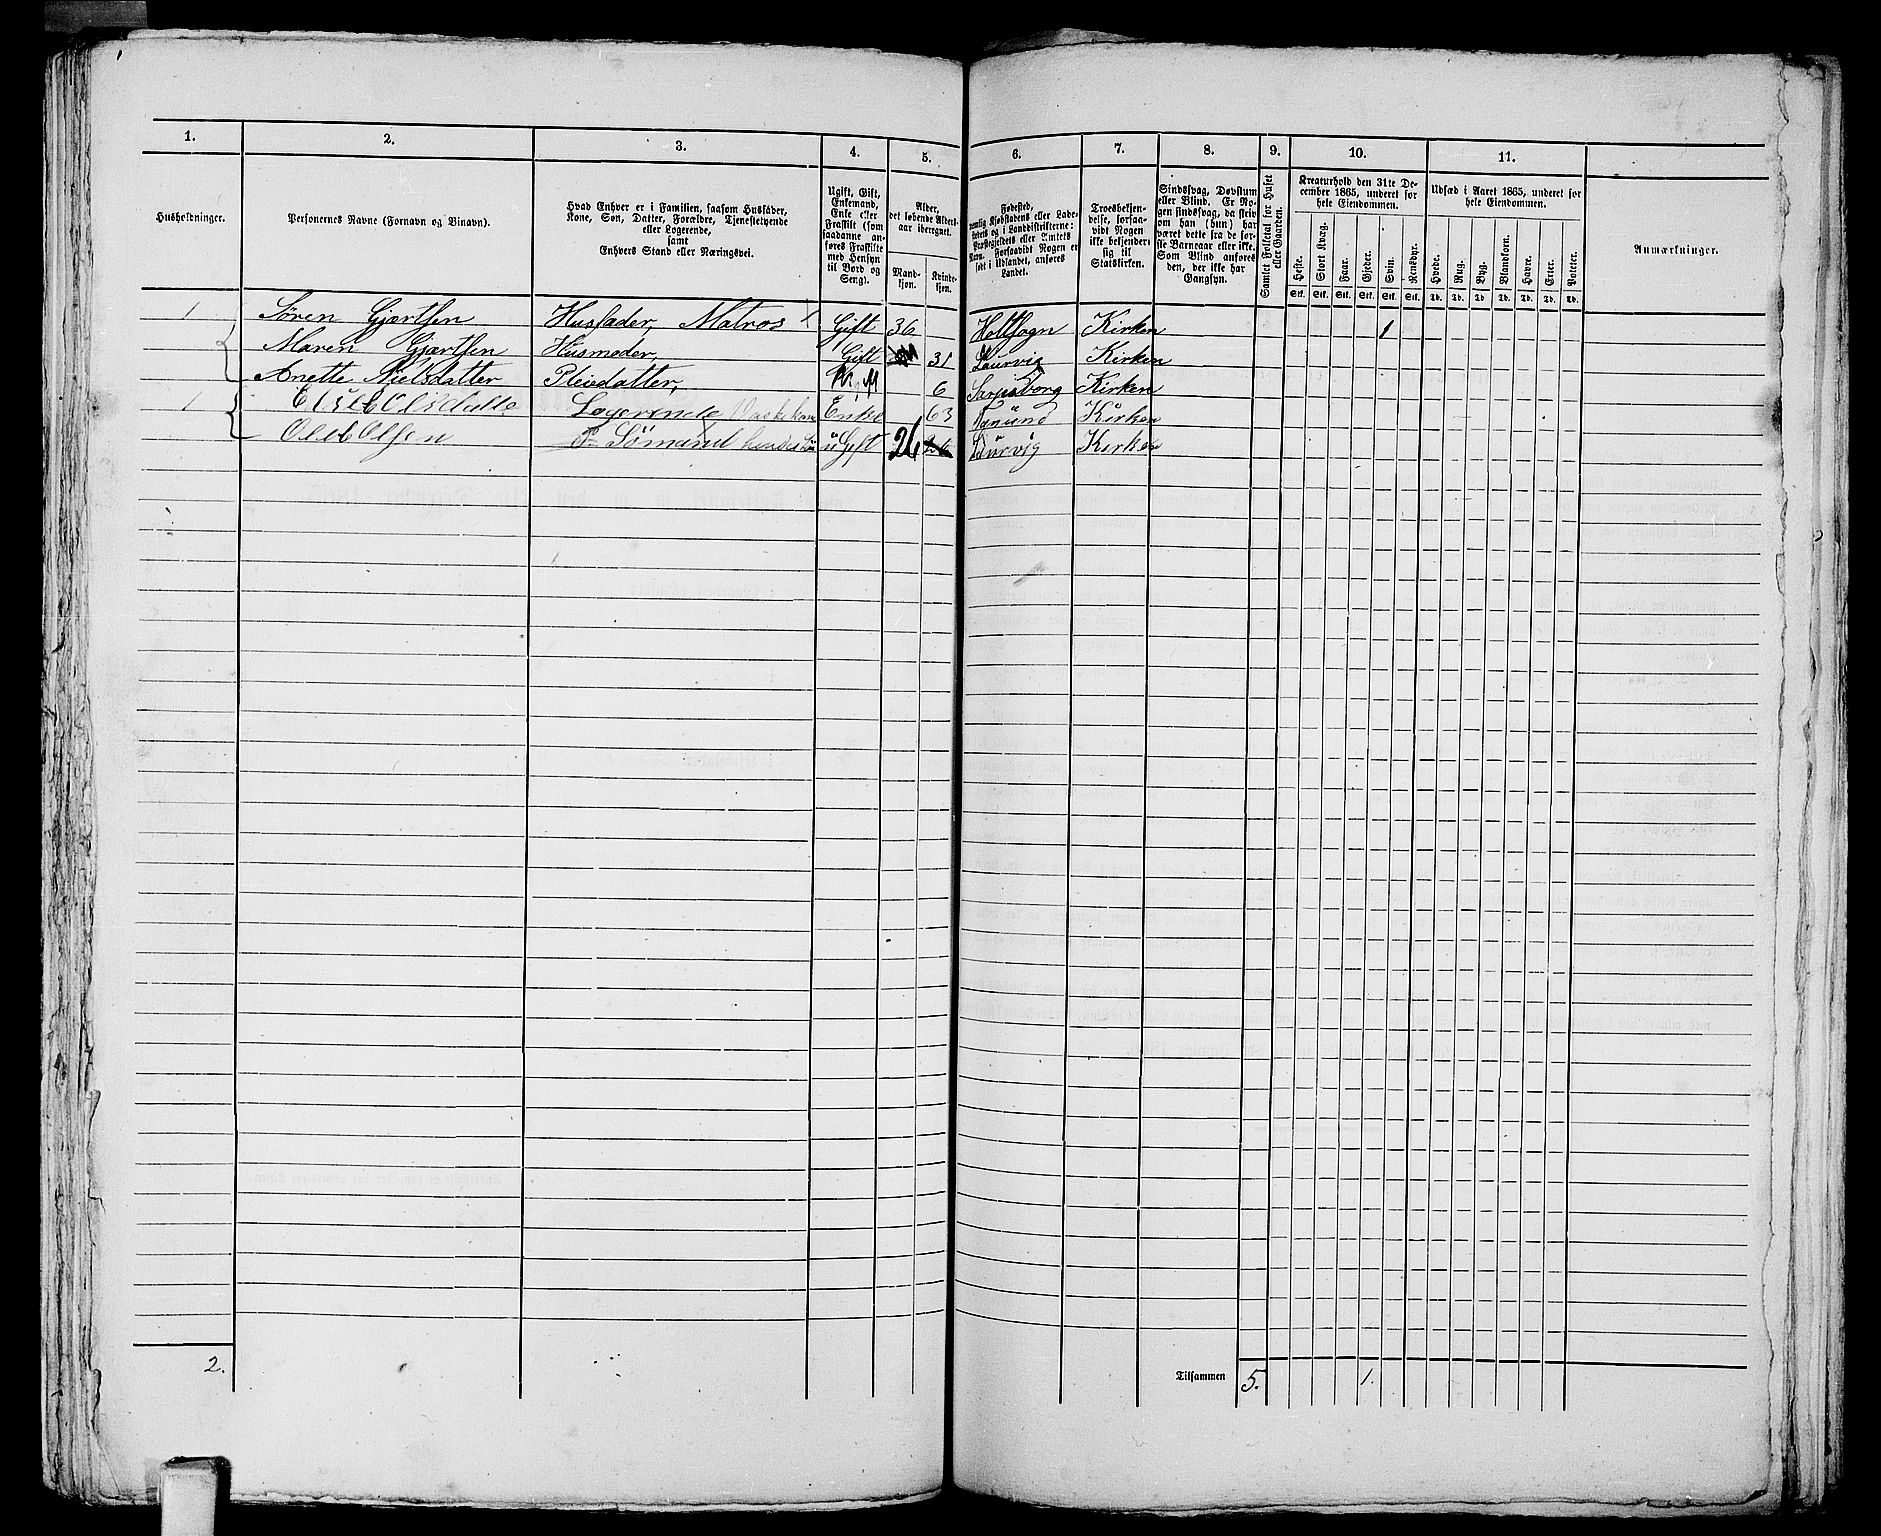 1. 2. 3. 4. 5. 6. 7. 8. 9. 10. 11.
Husholdninger.
Personernes Navne (Fornavn og Binavn).
Hvad Enhver er i Familien, saasom Husfader,
Kone, Søn, Datter, Forældre, Tjenestetyende
eller Logerende,
samt
Enhvers Stand eller Næringsvei.
Ugift, Gift,
Enkemand,
Enke eller
Fraskilt (som
saadanne an-
føres Fraskilte
med Hensyn
til Bord og
Seng).
Alder,
det løbende Alders-
aar iberegnet.
Mand-
kjøn.
Kvinde-
kjøn.
Fødested,
nemlig Kjøbstadens eller Lade-
stedets og i Landdistrikterne:
Præstegjeldets eller Amtets
Navn. Forsaavidt Nogen er
født i Udlandet, anføres
Landet.
Troesbekjen-
delse, forsaa-
vidt Nogen
ikke bekjender
sig til
Statskirken.
Sindssvag, Døvstum
eller Blind. Er No-
gen sindssvag, da skriv
om han (hun) har
været dette fra de før-
ste Barneaar eller ikke.
Som Blind anføres
den, der ikke har
Gangsyn.
Samlet Folketal for Huset
eller Gaarden.
Kreaturhold den 31te De-
cember 1865, underet for
hele Eiendommen.
Heste. Stort Kvæg. Faar. Gjeder. Svin. Rensdyr.
Stk. Stk. Stk. Stk. Stk. Stk.
Udsæd i Aaret 1865, underet for
hele Eiendommen.
Hvede. Rug. Byg. Blandkorn. Havre. Erter. Poteter.
Td. Td. Td. Td. Td. Td. Td.
Anmærkninger.
1 Søren Gjærtsen Husfader, Matros 1 Gift 36 Holtsogn Kirken 1
Maren Gjærtsen Husmoder, Gift 31 Laurvig Kirken
Anette Nielsdatter Pleiedatter, 6 Sarpsborg Kirken
1 Logerende Vaskekone Enke 63 Kirken
Ole Olsen Sømand hendes Søn uGift 26 Laurvig Kirken
2. Tilsammen 5. 1.